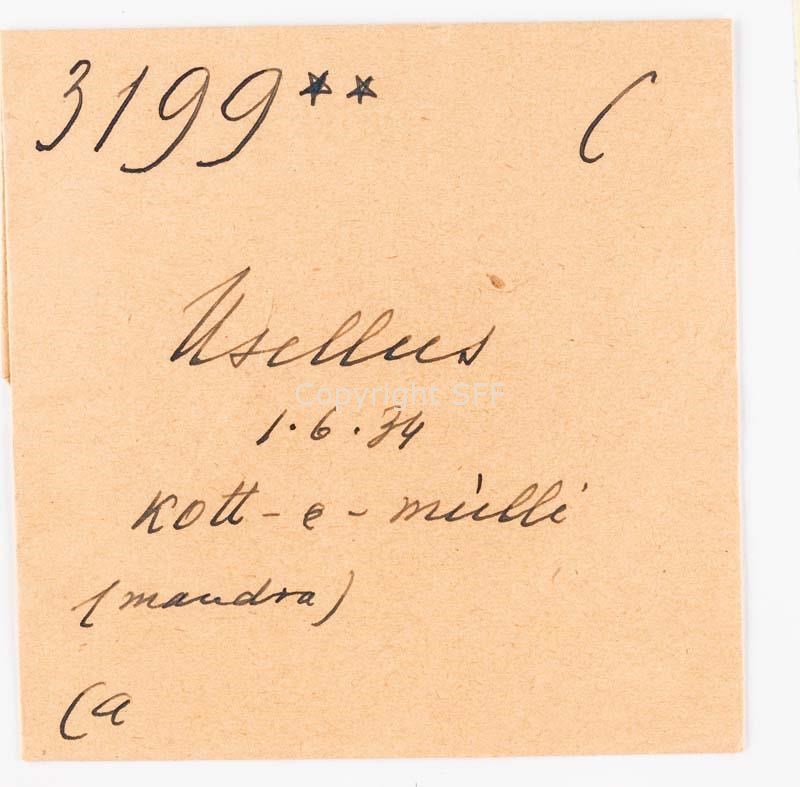 3199** C
Usellus
Copyright SFF
1.6.34
Kott-e-mùlli
(mandra)
Ca